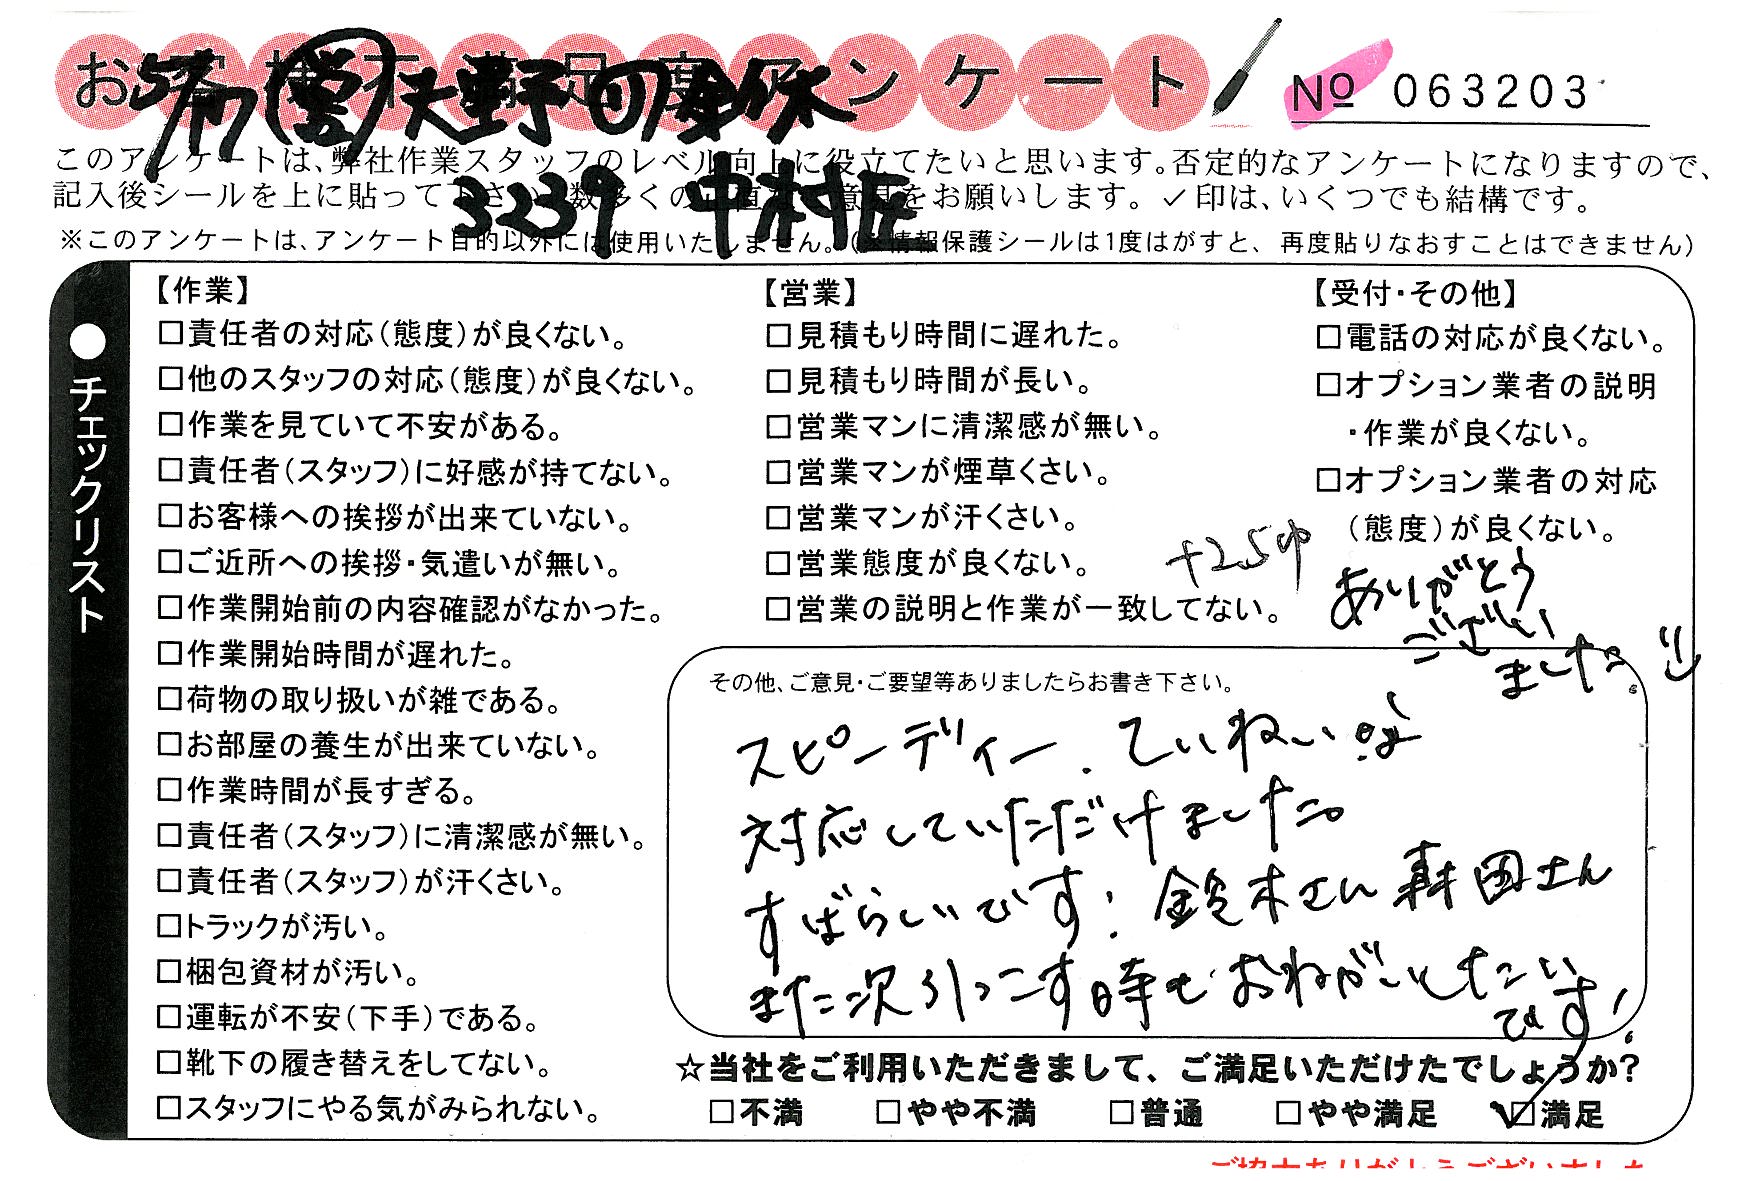 お客様不満足度アンケート
№ 063203
5/17 営 天野
3239 中村庄
このアンケートは、弊社作業スタッフのレベル向上に役立てたいと思います。否定的なアンケートになりますので、
記入後シールを上に貼って下さい。数多くの正直な意見をお願いします。✓印は、いくつでも結構です。
※このアンケートは、アンケート目的以外には使用いたしません。(※情報保護シールは1度はがすと、再度貼りなおすことはできません)
●チェックリスト
【作業】
□責任者の対応(態度)が良くない。
□他のスタッフの対応(態度)が良くない。
□作業を見ていて不安がある。
□責任者(スタッフ)に好感が持てない。
□お客様への挨拶が出来ていない。
□ご近所への挨拶・気遣いが無い。
□作業開始前の内容確認がなかった。
□作業開始時間が遅れた。
□荷物の取り扱いが雑である。
□お部屋の養生が出来ていない。
□作業時間が長すぎる。
□責任者(スタッフ)に清潔感が無い。
□責任者(スタッフ)が汗くさい。
□トラックが汚い。
□梱包資材が汚い。
□運転が不安(下手)である。
□靴下の履き替えをしてない。
□スタッフにやる気がみられない。
【営業】
□見積もり時間に遅れた。
□見積もり時間が長い。
□営業マンに清潔感が無い。
□営業マンが煙草くさい。
□営業マンが汗くさい。
□営業態度が良くない。
□営業の説明と作業が一致してない。
【受付・その他】
□電話の対応が良くない。
□オプション業者の説明
・作業が良くない。
□オプション業者の対応
(態度)が良くない。
+25p
ありがとう
ござい
ました。
その他、ご意見・ご要望等ありましたらお書き下さい。
スピーディー、ていねいな
対応していただけました。
すばらしいです! 鈴木さん 森田さん
また次引っこす時もおねがいしたい
です!
☆当社をご利用いただきまして、ご満足いただけたでしょうか?
□不満 □やや不満 □普通 □やや満足 ☑満足
ご協力ありがとうございました